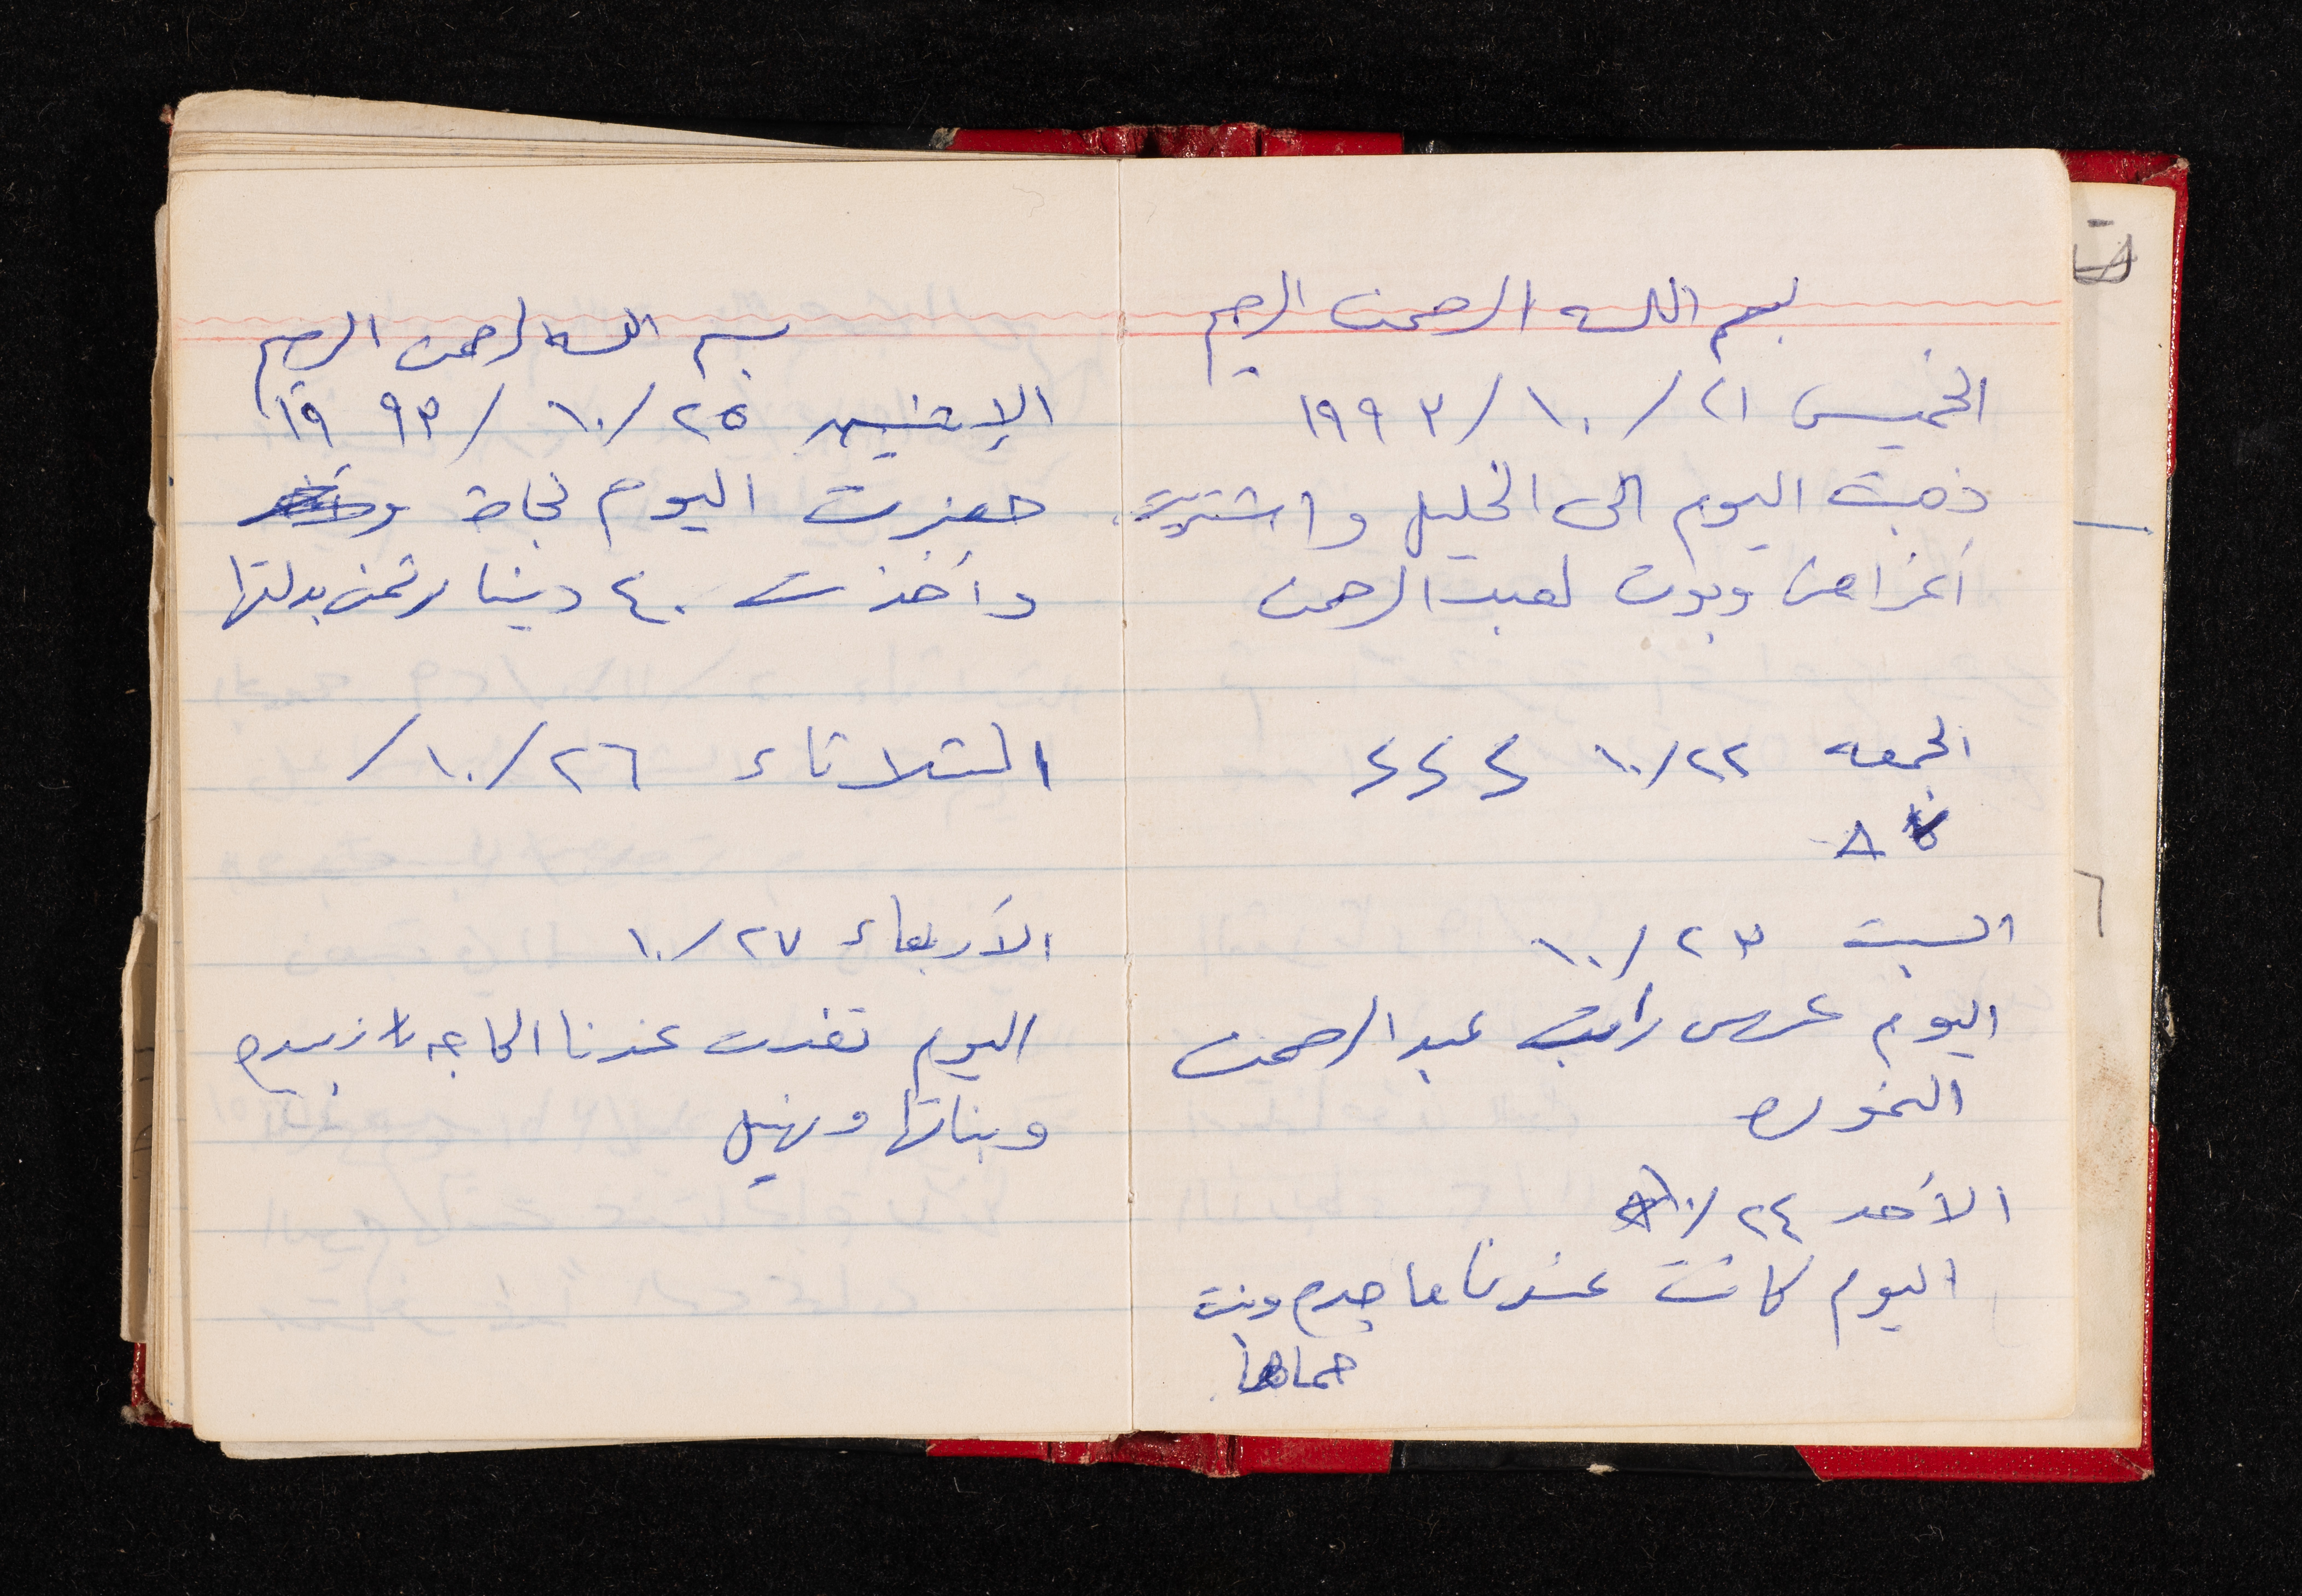 بسم الله الرحمن الرحيم
الخميس ٢١/١٠/١٩٩٣
ذهبت اليوم الى الخليل واشتريت
أغراض وبوت لعبد الرحمن
الجمعه ٢٢/١٠ ؟؟؟
السبت ٢٣/١٠
اليوم عرس راتب عبد الرحمن
النموره
الأحد ٢٤/١٠
اليوم كانت عندنا ماجده وبنت
حماها
بسم الله لرحمن الرحيم
الإثنين ٢٥/١٠/١٩٩٣
حضرت اليوم نجاة
وأخذت ٤٠ دينار ثمن بدلتها
الثلاثاء ٢٦/١٠/
الأربعاء ٢٧/١٠
اليوم تغدت عندنا الحاجه زبيده
وبناتها ونهيل